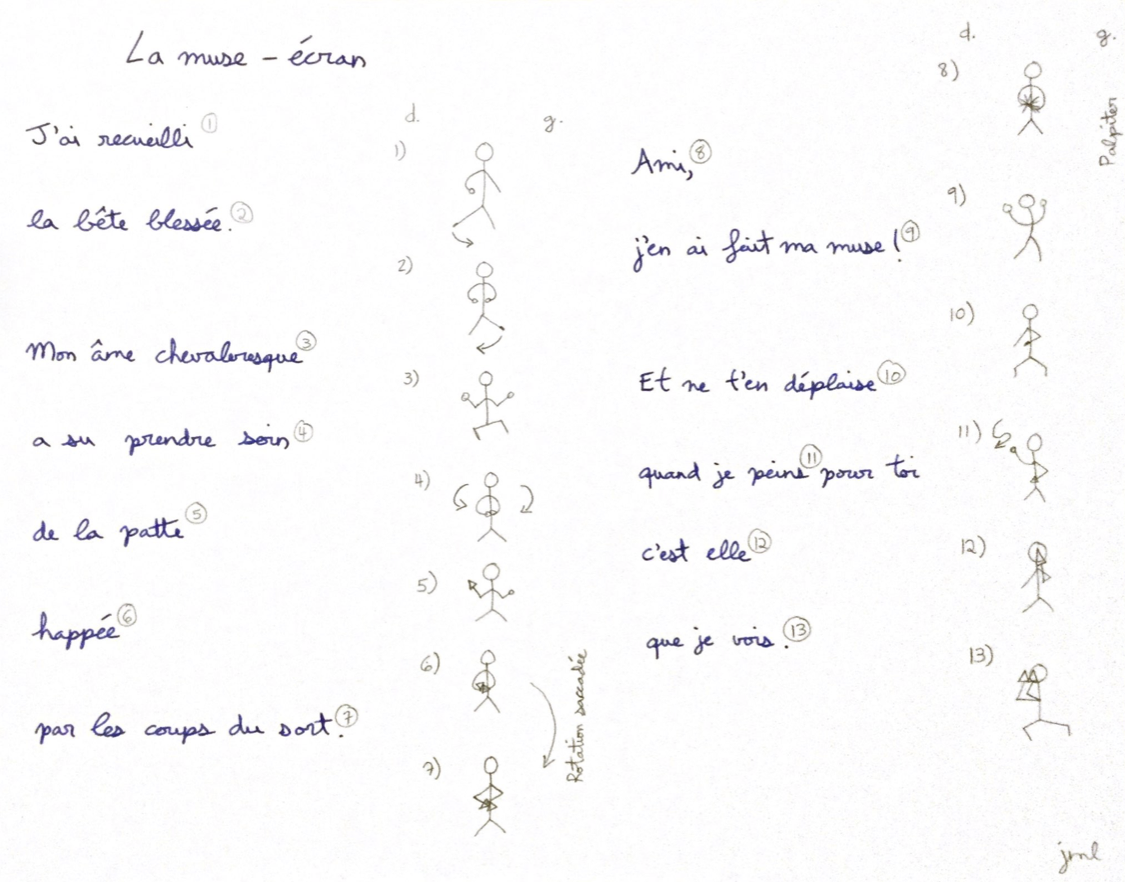 La muse - écran
J'ai recueilli ①
la bête blessée. ②
Mon âme chevaleresque ③
a su prendre soin ④
de la patte ⑤
happée ⑥
par les coups du sort. ⑦
d. g.
1)
2)
3)
4)
5)
6)
Rotation saccadée
7)
Ami, ⑧
j'en ai fait ma muse ! ⑨
Et ne t'en déplaise ⑩
quand je peins ⑪ pour toi
c'est elle ⑫
que je vois. ⑬
d. g.
8)
Palpiter
9)
10)
11)
12)
13)
jml